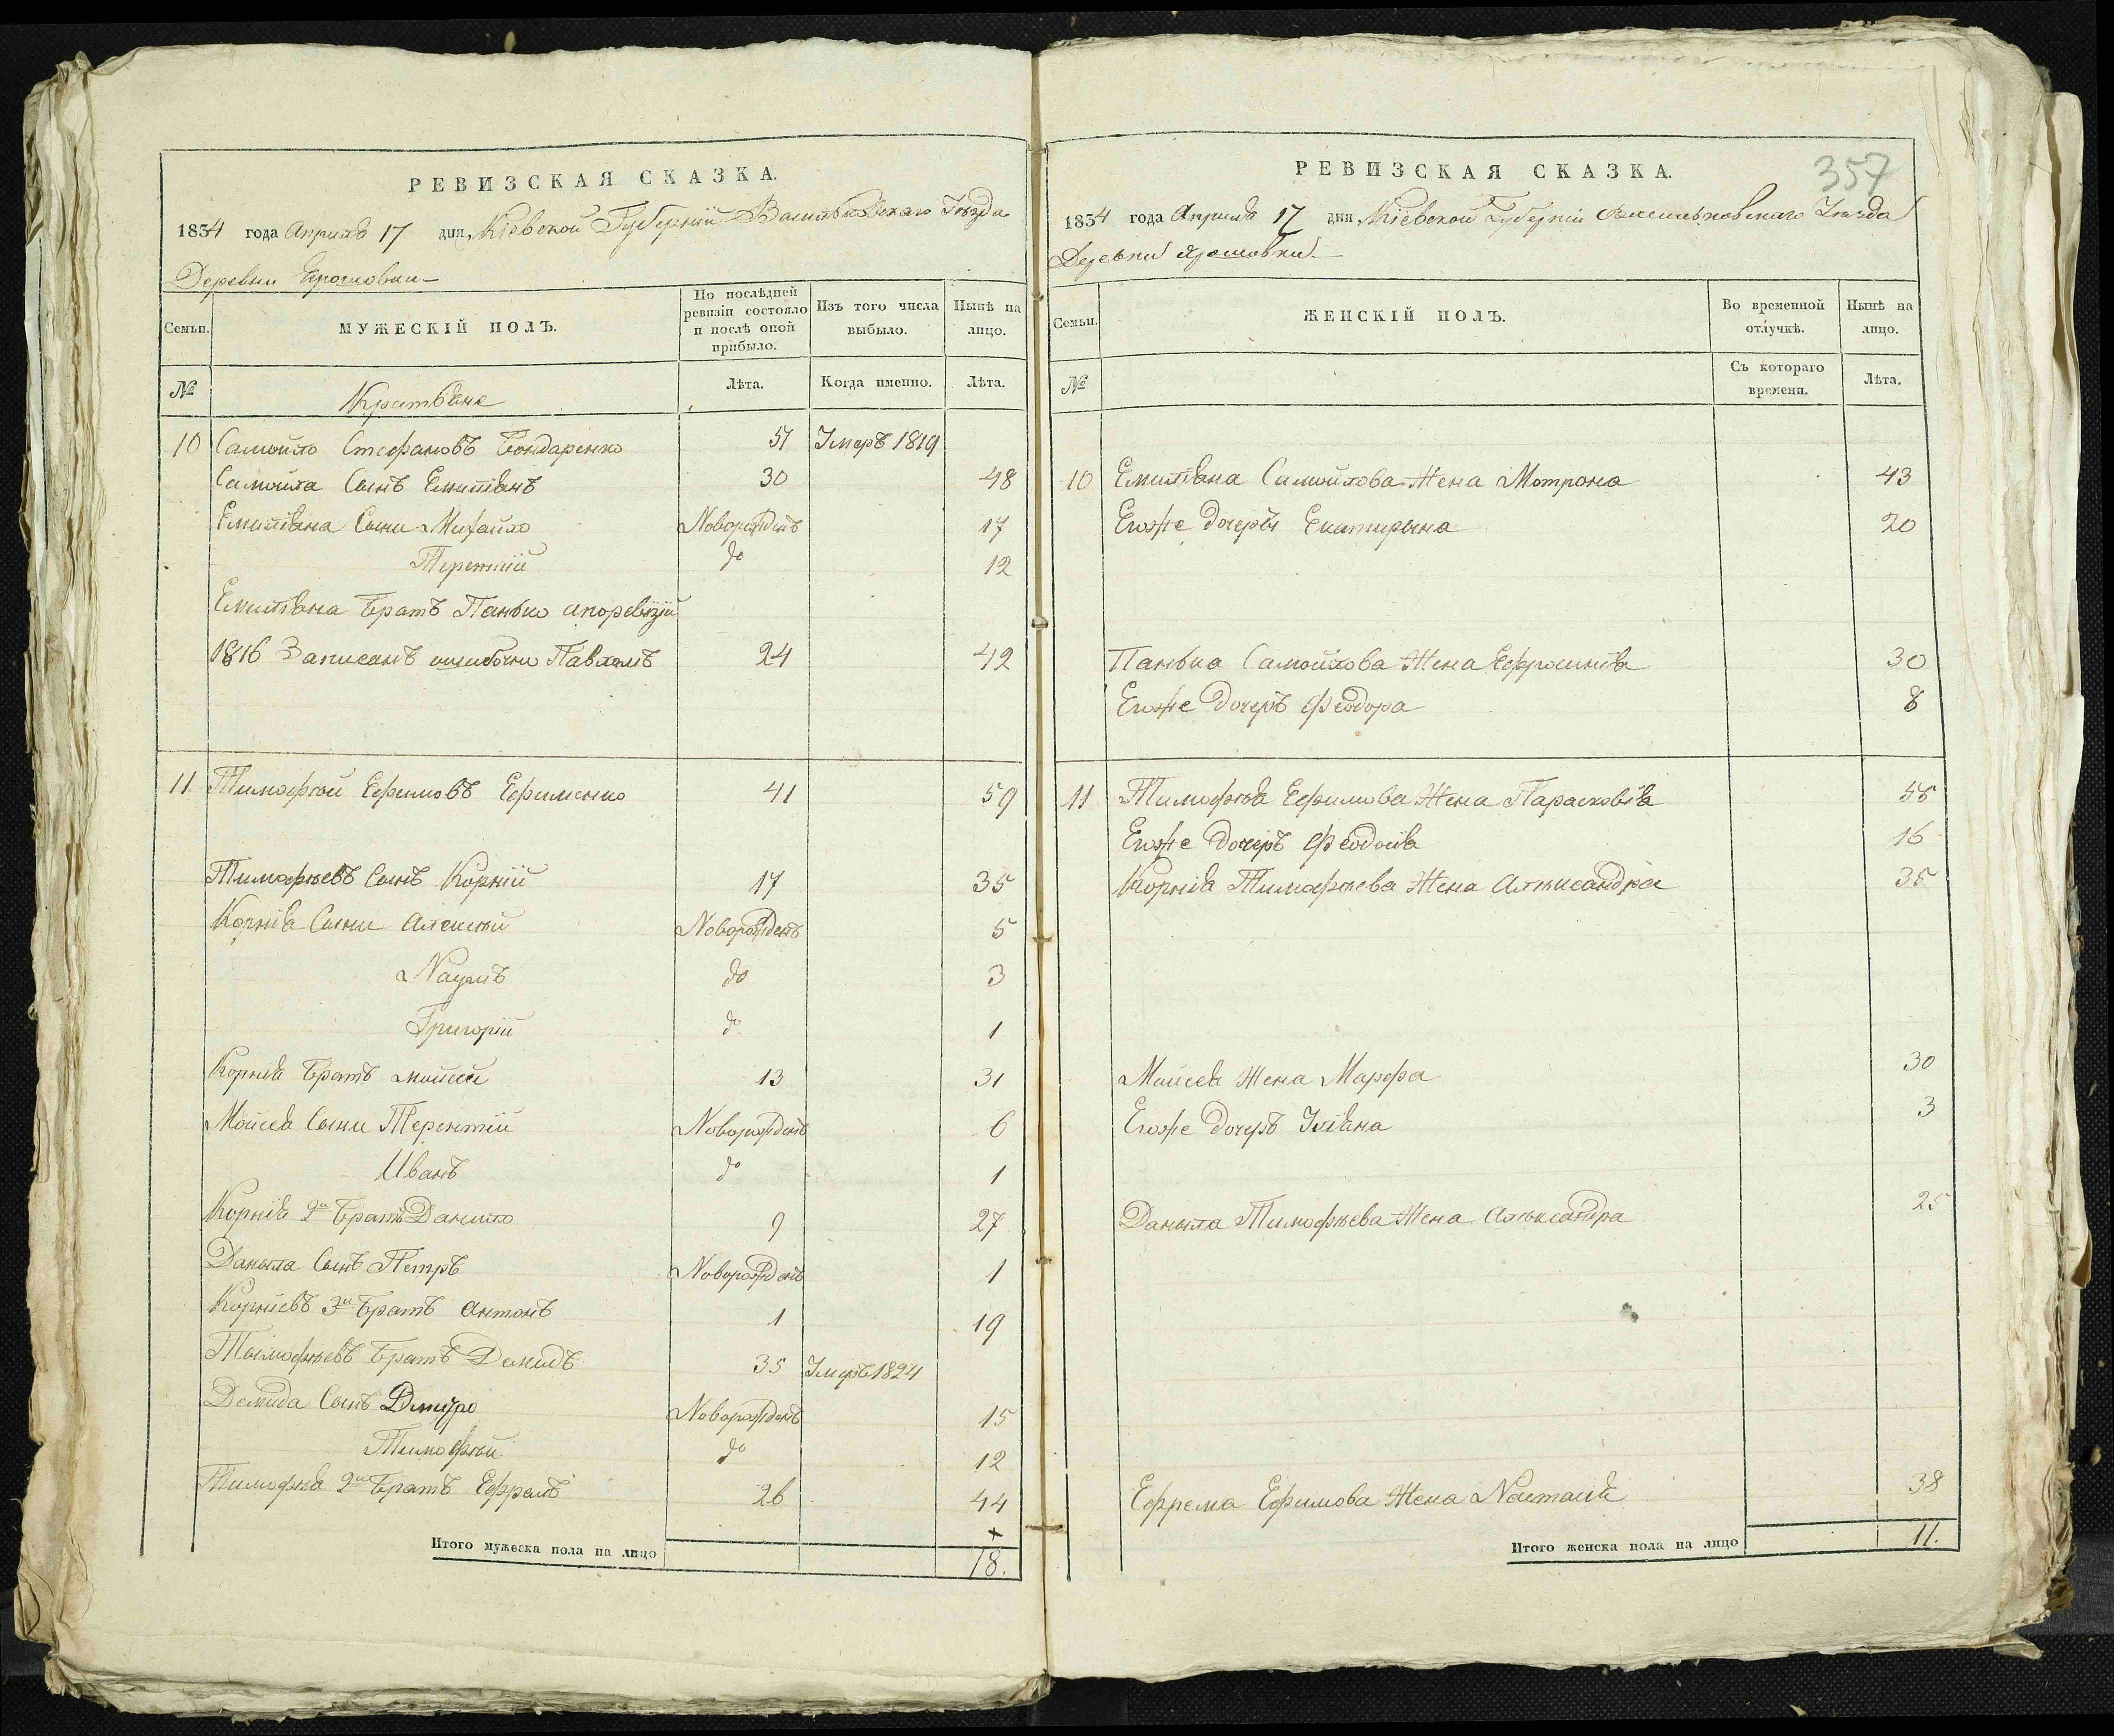 РЕВИЗСКАЯ СКАЗКА.
1834 года Априля 17 дня, Кіевской Губерніи Васильковскаго Уѣзда
Деревни Ярошовки
Семьи.
МУЖЕСКІЙ ПОЛЪ.
По послѣдней ревизіи состояло и послѣ оной прибыло.
Изъ того числа выбыло.
Нынѣ на лицо.
№
Крестьяне
Лѣта.
Когда именно.
Лѣта.
10 Самойло Стефановъ Бондаренко 51 Умеръ 1819
Самойла Сынъ Емиліянъ 30 48
Емиліяна Сыни Михайло Новорожденъ 17
Терентій до 12
Емиліяна Братъ Панько а по ревизіи
1816 Записанъ ошибочно Павломъ 24 42
11 Тимофѣй Ефимовъ Ефименко 41 59
Тимофѣевъ Сынъ Корній 17 35
Корнія Сыни Алексѣй Новорожденъ 5
Наумъ до 3
Григорій до 1
Корнія Братъ Мойсей 13 31
Мойсея Сыни Терентій Новорожденъ 6
Иванъ до 1
Корнія 2й Братъ Данило 9 27
Даныла Сынъ Петръ Новорожденъ 1
Корніевъ 3й Братъ Антонъ 1 19
Тымофѣевъ Братъ Демидъ 35 Умеръ 1824
Демида Сынъ Дмитро Новорожденъ 15
Тимофѣй до 12
Тимофѣя 2й Братъ Ефремъ 26 44
Итого мужеска пола на лицо 18.
357
РЕВИЗСКАЯ СКАЗКА.
1834 года Априля 17 дня, Кіевской Губерніи Васильковскаго Уѣзда
Деревни Ярошовки.
Семьи.
ЖЕНСКІЙ ПОЛЪ.
Во временной отлучкѣ.
Нынѣ на лицо.
№
Съ котораго времени.
Лѣта.
10 Емиліяна Самойлова Жена Мотрона 43
Егоже Дочерь Екатирына 20
Панька Самойлова Жена Ефросинія 30
Егоже Дочеръ Феодора 8
11 Тимофѣя Ефимова Жена Парасковія 55
Егоже Дочеръ Феодосія 16
Корнія Тимофѣева Жена Алѣксандра 35
Мойсея Жена Марфа 30
Егоже Дочеръ Уліяна 3
Даныла Тимофѣева Жена Алѣксандра 25
Ефрема Ефимова Жена Настасія 38
Итого женска пола на лицо 11.